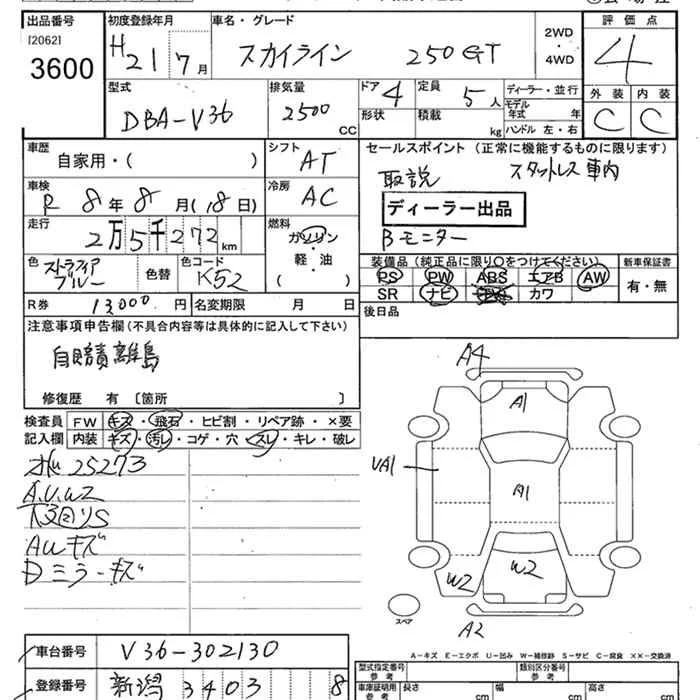 出品番号
[2062]
3600
初度登録年月
H21 7月
車名・グレード
スカイライン 250GT
2WD
・
4WD
評価点
4
型式
DBA-V36
排気量
2500 CC
ドア 4
定員 5人
形状
積載 kg
ディーラー・並行
モデル年式 年
ハンドル 左・右
外装 内装
C C
車歴
自家用・( )
シフト
AT
車検
R 8年8月(18日)
冷房
AC
走行
2万5千272km
燃料
ガソリン
・
軽・油
( )
色 ストラティアブルー
色替
色コード
K52
R券 13,000円
名変期限 月 日
セールスポイント (正常に機能するものに限ります)
取説 スタットレス車内
ディーラー出品
Bモニター
装備品(純正品に限り○をつけてください)
新車保証書
PS PW ABS エアB AW
SR ナビ カワ
有・無
後日品
注意事項申告欄(不具合内容等は具体的に記入して下さい)
自賠責離島
修復歴 有 〔箇所 〕
検査員
記入欄
FW キズ・飛石・ヒビ割・リペア跡・×要
内装 キズ・汚レ・コゲ・穴・スレ・キレ・破レ
25273
A.U.W2
下回りS
AWキズ
Dミラーキズ
A4
A1
UA1
A1
W2
W2
A2
スペア
A-キズ E-エクボ U-凹み W-補修跡 S-サビ C-腐食 XX-交換済
車台番号
V36-302130
登録番号
新潟 3403 8
型式指定番号
参考
類別区分番号
参考
車庫証明用
参考
長さ cm
幅 cm
高さ cm